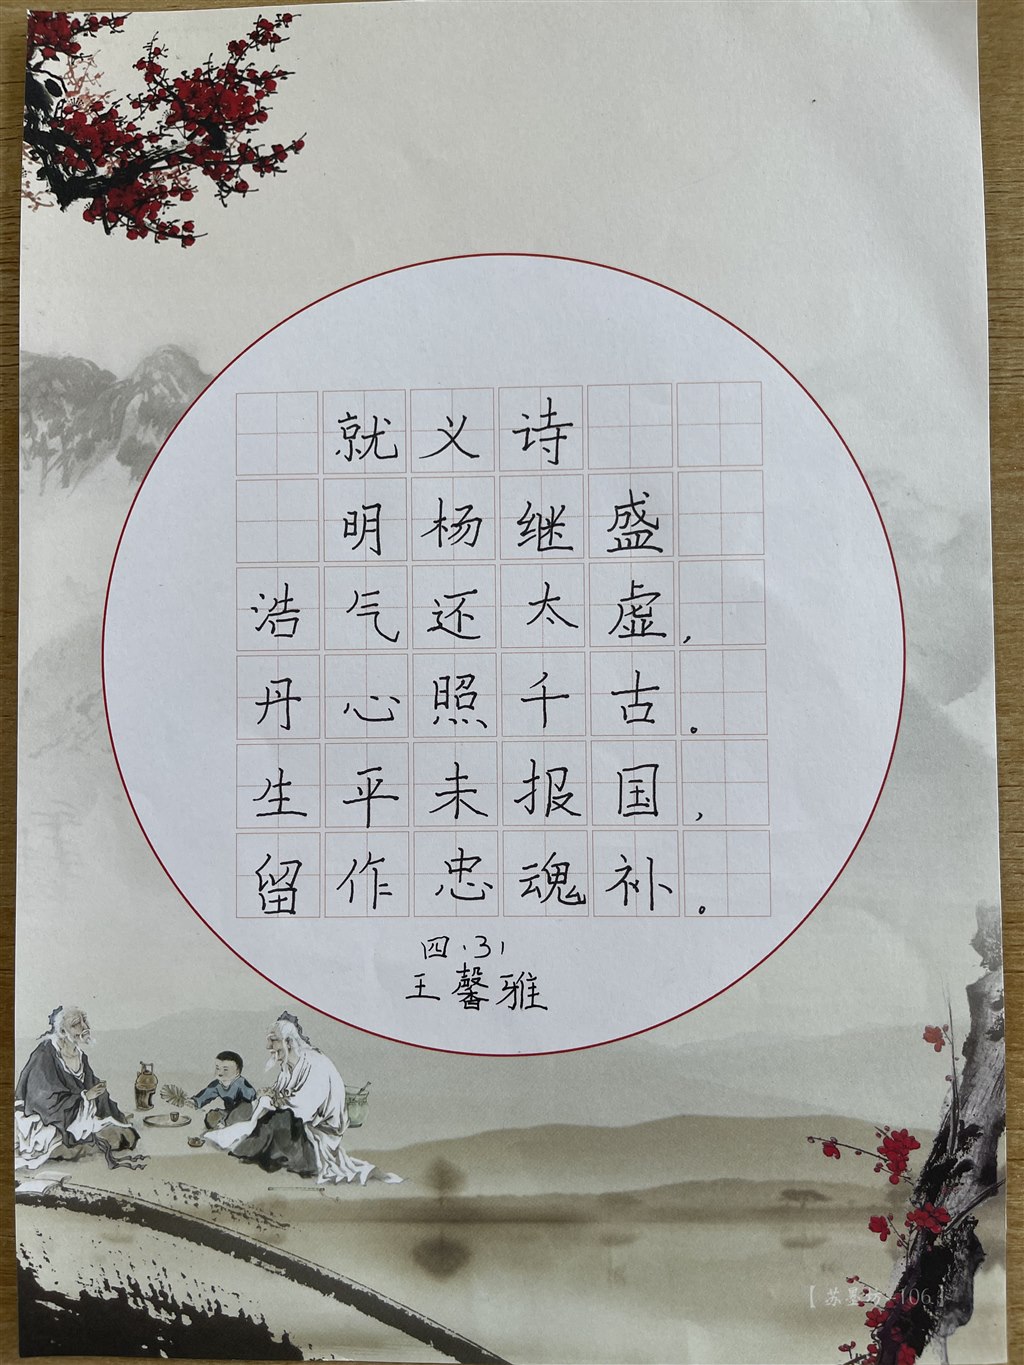 就义诗
明杨继盛
浩气还太虚，
丹心照千古。
生平未报国，
留作忠魂补。
四.31
王馨雅
【苏墨坊-106】